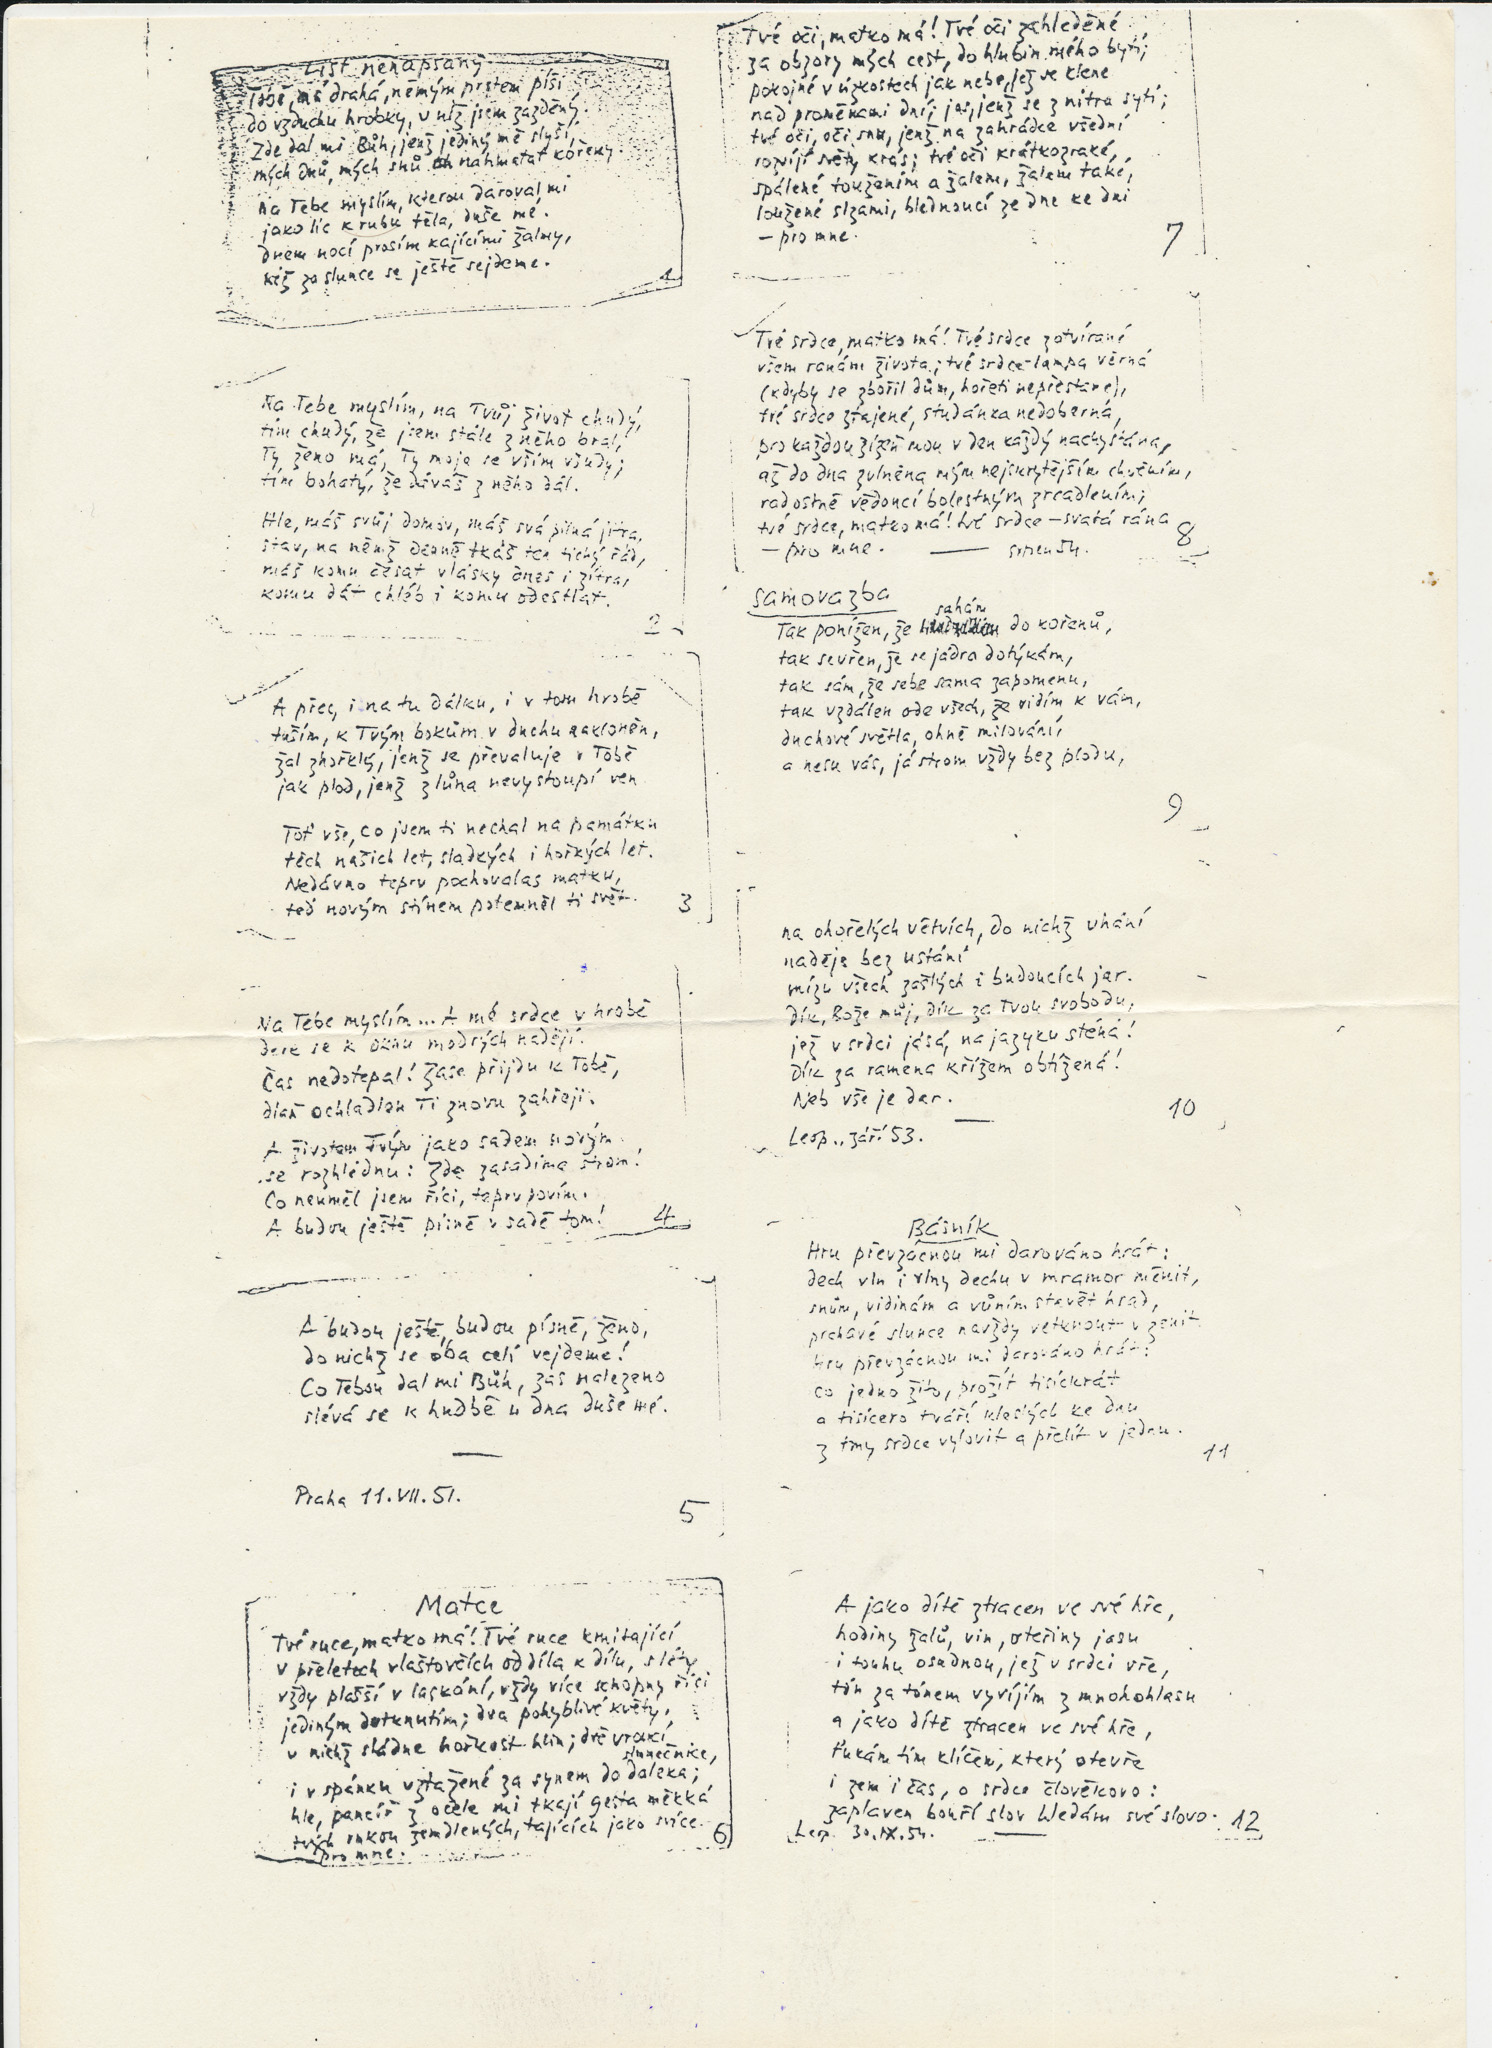 List nenapsaný
Tobě, má drahá, němým prstem píši
do vzduchu hrobky, v níž jsem zazděný.
Zde dal mi Bůh, jenž jediný mě slyší,
mých dnů, mých snů nahmatat kořeny.
Na Tebe myslím, kterou daroval mi
jako líc k rubu těla, duše mé.
dnem nocí prosím kajícími žalmy,
kéž za slunce se ještě sejdeme.
1
Na Tebe myslím, na Tvůj život chudý,
tím chudý, že jsem stále z něho bral,
Ty ženo má, Ty moje se vším všudy;
tím bohatý, že dáváš z něho dál.
Hle, máš svůj domov, máš svá pilná jitra,
stav, na němž denně tkáš ten tichý řád,
máš komu česat vlásky dnes i zítra,
komu dát chléb i komu odestlat.
2
A přec, i na tu dálku, i v tom hrobě
tuším, k Tvým bokům v duchu nakloněn,
žal zhořklý, jenž se převaluje v Tobě
jak plod, jenž z lůna nevystoupí ven
Toť vše, co jsem ti nechal na památku
těch našich let, sladkých i hořkých let.
Nedávno teprv pochovalas matku,
teď novým stínem potemněl ti svět.
3
Na Tebe myslím... A mé srdce v hrobě
dere se k oknu modrých nadějí.
Čas nedotepal! Zase přijdu k Tobě,
dlaň ochladlou Ti znovu zahřeji.
A životem Tvým jako sadem novým
se rozhlédnu: Zde zasadíme strom!
Co neuměl jsem říci, teprv povím.
A budou ještě písně v sadě tom!
4
A budou ještě, budou písně, ženo,
do nichž se oba celí vejdeme!
Co Tebou dal mi Bůh, zas nalezeno
slévá se k hudbě u dna duše mé.
Praha 11.VII.51.
5
Matce
Tvé ruce, matko má! Tvé ruce kmitající
v přeletech vlaštovčích od díla k dílu, s léty
vždy plašší v laskání, vždy více schopny říci
jediným dotknutím; dva pohyblivé květy,
v nichž sládne hořkost hlin; dvě vroucí
slunečnice,
i v spánku vztažené za synem do daleka;
hle, pancíř z ocele mi tkají gesta měkká
tvých rukou zemdlených, tajících jako svíce
pro mne.
6
Tvé oči, matko má! Tvé oči zahleděné
za obzory mých cest, do hlubin mého bytí;
pokojné v úzkostech jak nebe, jež se klene
nad proměnami dní; jas, jenž se z nitra sytí;
tvé oči, oči snu, jenž na zahrádce všední
rozvíjí světy krás; tvé oči krátkozraké,
spálené toužením a žalem, žalem také,
loužené slzami, blednoucí ze dne ke dni
– pro mne.
7
Tvé srdce, matko má! Tvé srdce zotvírané
všem ranám života; tvé srdce-lampa věrná
(kdyby se zbořil dům, hořeti nepřestane),
tvé srdce ztajené, studánka nedoberná,
pro každou žízeň mou v den každý nachystána,
až do dna zvlněna mým nejskrytějším chvěním,
radostně vědoucí bolestným zrcadlením;
tvé srdce, matko má! tvé srdce – svatá rána
– pro mne.
srpen 54.
8
samovazba
sahám
Tak ponížen, že do kořenů,
tak sevřen, že se jádra dotýkám,
tak sám, že sebe sama zapomenu,
tak vzdálen ode všech, že vidím k vám,
duchové světla, ohně milování,
a nesu vás, já strom vždy bez plodu,
9
na ohořelých větvích, do nichž vhání
naděje bez ustání
mízu všech zašlých i budoucích jar.
dík, Bože můj, dík za Tvou svobodu,
jež v srdci jásá, na jazyku sténá!
Dík za ramena křížem obtížená!
Neb vše je dar.
10
Leop., září 53.
Básník
Hru převzácnou mi darováno hrát:
dech vln i vlny dechu v mramor měnit,
snům, vidinám a vůním stavět hrad,
prchavé slunce navždy vetknout v zenit.
Hru převzácnou mi darováno hrát:
co jedno žito, prožít tisíckrát
a tisícero tváří kleslých ke dnu
z tmy srdce vylovit a přelít v jednu.
11
A jako dítě ztracen ve své hře,
hodiny žalů, vin, vteřiny jasu
i touhu osudnou, jež v srdci vře,
tón za tónem vyvíjím z mnohohlasu
a jako dítě ztracen ve své hře,
ťukám tím klíčem, který otevře
i zem i čas, o srdce člověkovo:
zaplaven bouří slov hledám své slovo.
12
Leop. 30.IX.54.